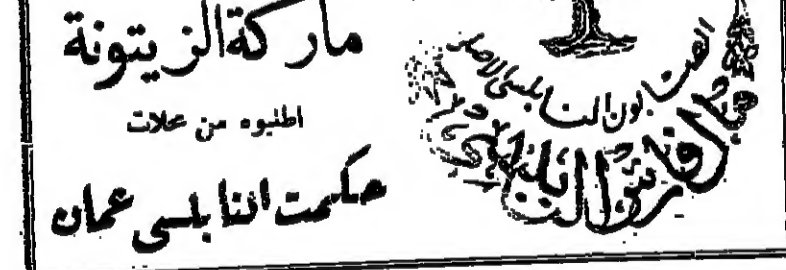 ماركة الزيتونة
اطلبوه من محلات
حكمت النابلسي عمان
الصابون النابلسي الاصلي